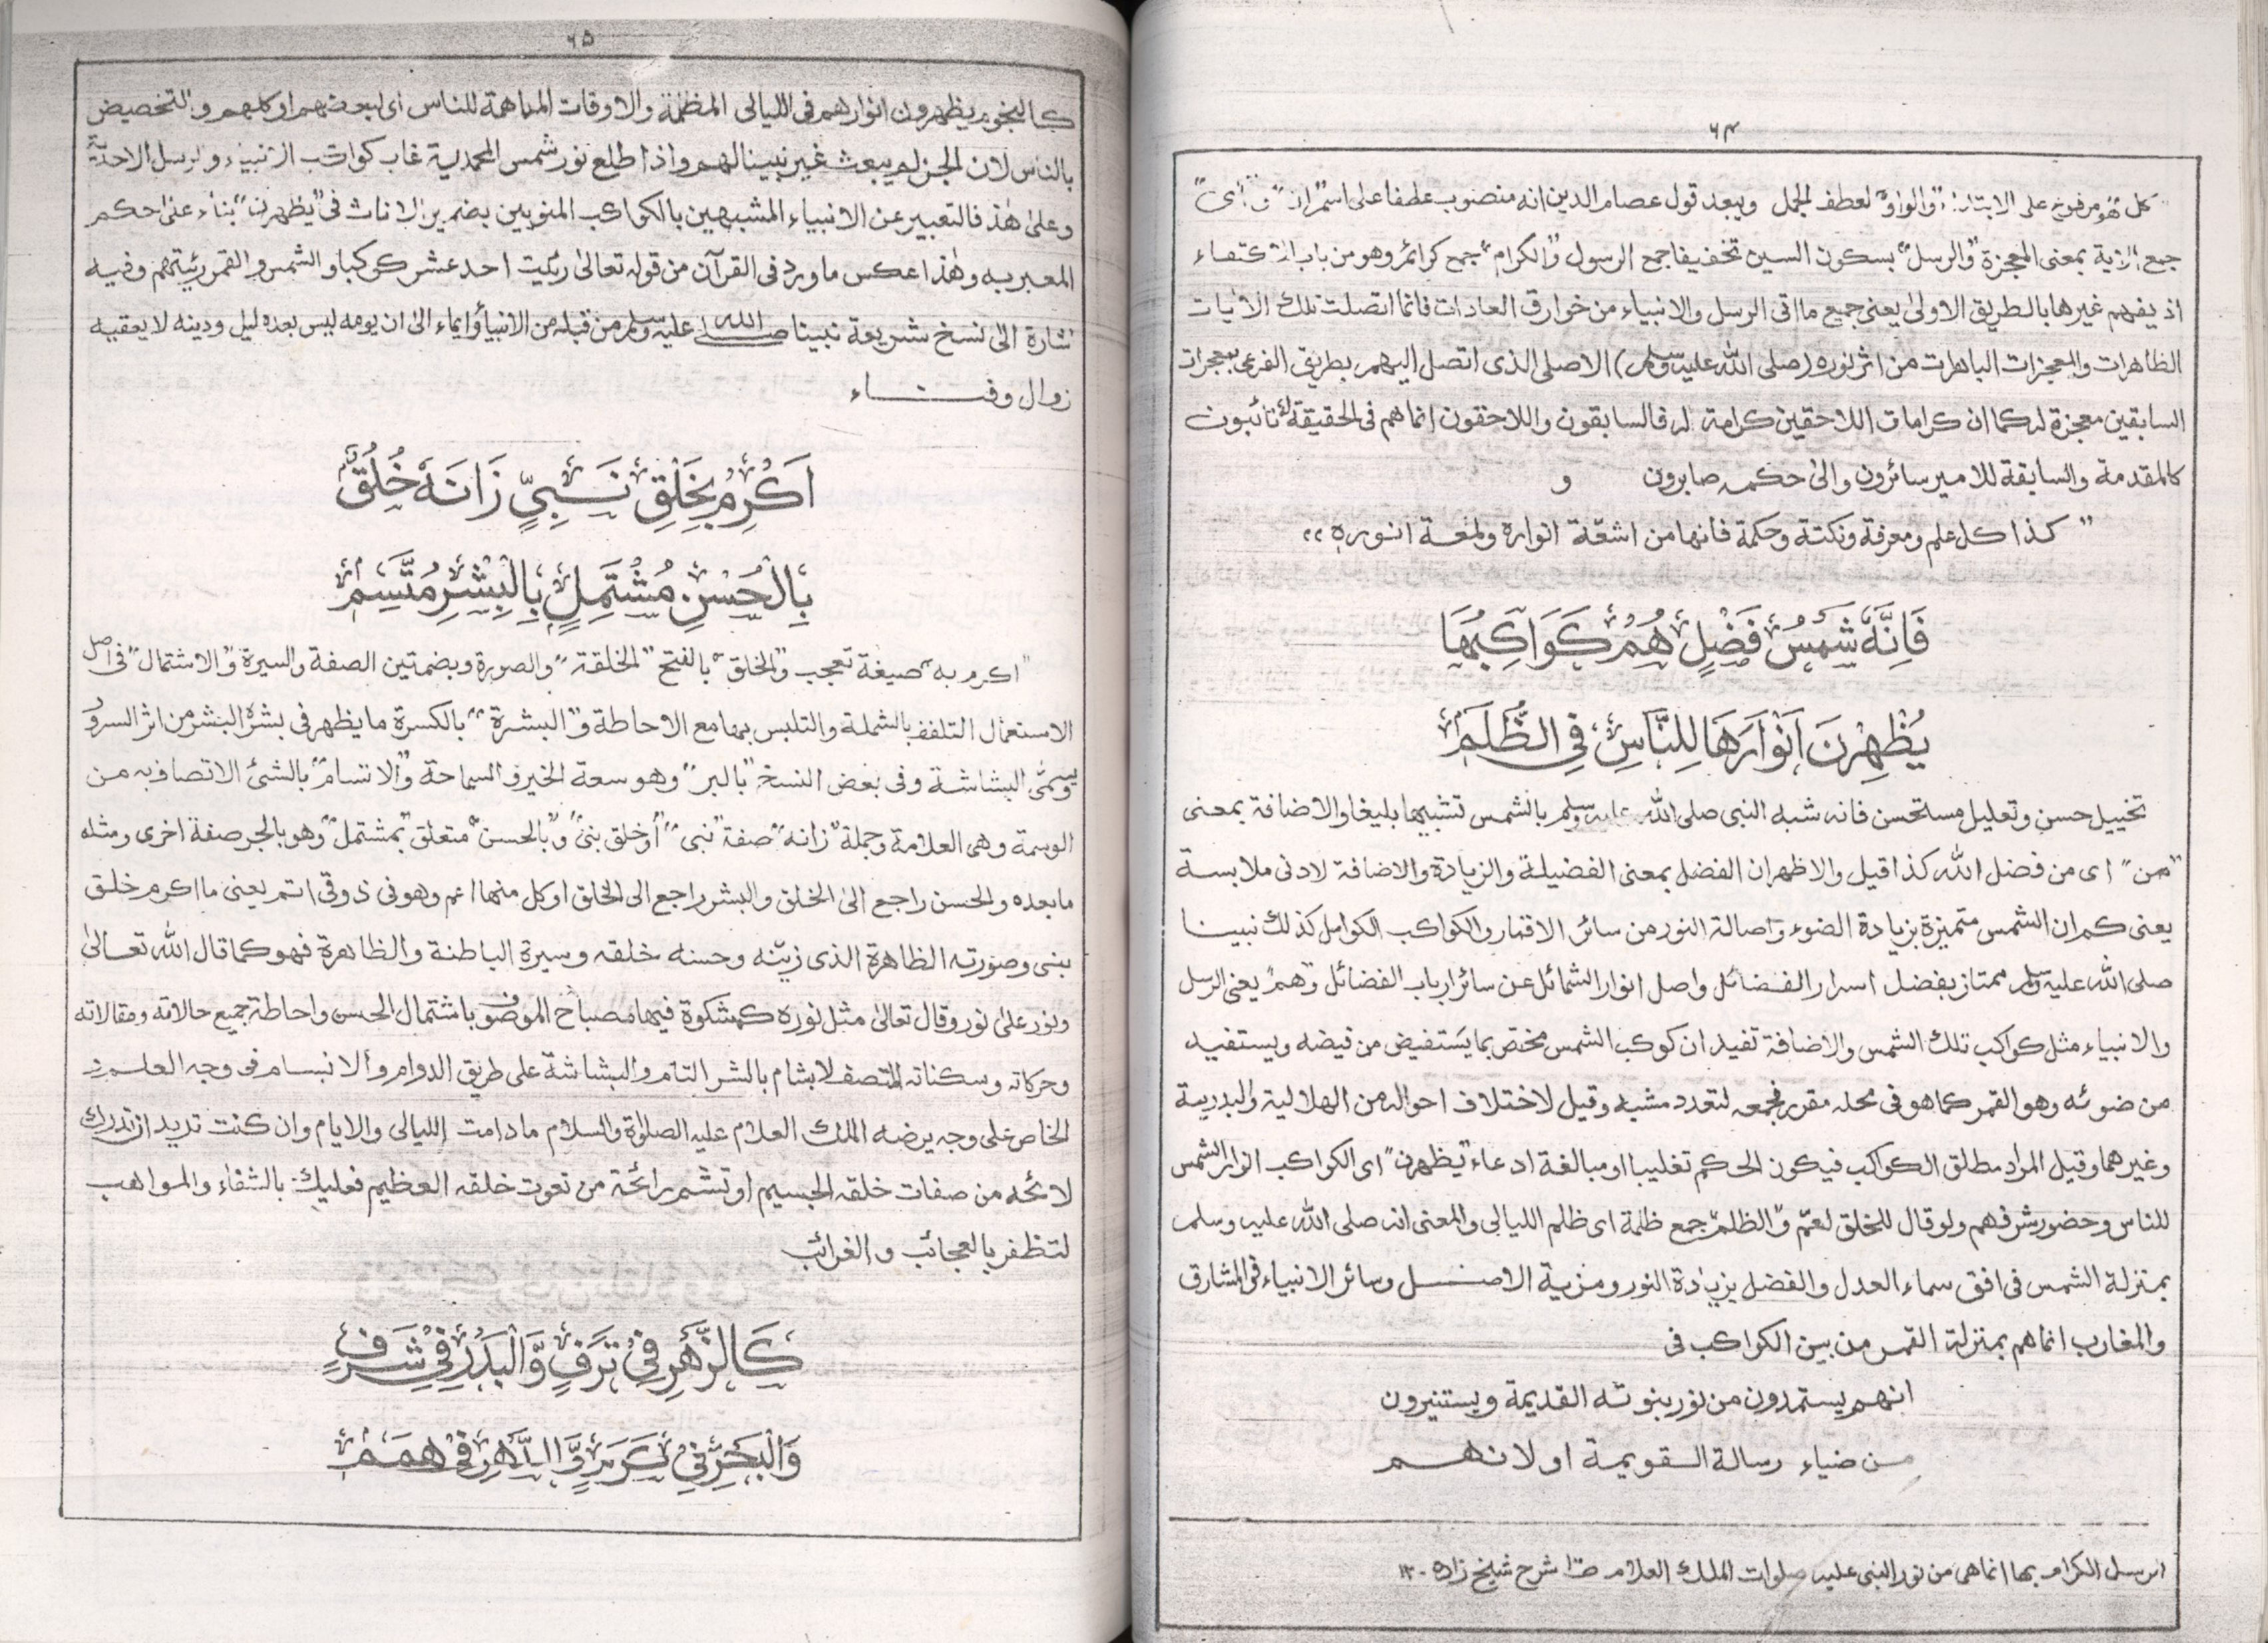 ٦٤
كل فهو مرفوع على الابتداء "والواو" لعطف الجمل ويبعد قول عصام الدين انه منصوب عطفا على اسم ان
جمع الاية بمعنى المعجزة "والرسل" بسكون السين تخفيفا جمع الرسول "والكرام" جمع كرائم وهو من باب الاكتفاء
اذ يفهم غيرها بالطريق الاولىٰ يعنى جميع ما اتى الرسل والانبياء من خوارق العادات فانما اتصلت تلك الاٰيات
الظاهرات والمعجزات الباهرات من اثر نوره (صلى الله عليه وسلم) الاصلى الذى اتصل اليهم بطريق الفرعى بمعجزات
السابقين معجزة له كما ان كرامات اللاحقين كرامة له فالسابقون واللاحقون انما هم فى الحقيقة له نائبون
كالمقدمة والسابقة للامير سائرون والىٰ حكمه صابرون و
"كذا كل علم ومعرفة ونكتة وحكمة فانها من اشعّة انواره ولمعة انوره"
فَاِنَّهٗ شَمْسُ فَضْلٍ هُمْ كَوَاكِبُهَا
يُظْهِرْنَ اَنْوَارَهَا لِلنَّاسِ فِي الظُّلَمِ
تخييل حسن وتعليل مستحسن فانه شبه النبى صلى الله عليه وسلم بالشمس تشبيها بليغا والاضافة بمعنى
"من" اى من فضل الله كذا قيل والاظهر ان الفضل بمعنى الفضيلة والزيادة والاضافة لادنى ملابسة
يعنى كم ان الشمس متميزة بزيادة الضوء واصالة النور من سائر الاقمار والكواكب الكوامل كذلك نبينا
صلى الله عليه وسلم ممتاز بفضل اسرار الفضائل واصل انوار الشمائل عن سائر ارباب الفضائل "وهم" يعنى الرسل
والانبياء مثل كواكب تلك الشمس والاضافة تفيد ان كوكب الشمس مختص بما يستفيض من فيضه ويستفيد
من ضوئه وهو القمر كما هو فى محله مقرر فجمعه لتعدد مشبه وقيل لاختلاف احواله من الهلالية والبدرية
وغيرهما وقيل المراد مطلق الكواكب فيكون الحكم تغليبا او مبالغة ادعاء "يظهرن" اى الكواكب انوار الشمس
للناس وحضور شرفهم ولو قال للخلق لعمّ "والظلم" جمع ظلمة اى ظلم الليالى والمعنى انه صلى الله عليه وسلم
بمنزلة الشمس فى افق سماء العدل والفضل بزيادة النور ومزية الاصل وسائر الانبياء فى المشارق
والمغارب انما هم بمنزلة القمر من بين الكواكب فى
انهم يستمدون من نور بنوته القديمة ويستنيرون
من ضياء رسالة القويمة او لانهم
الرسل الكرام بها انما هى من نور النبى عليه صلوات الملك العلام شرح شيخ زاده - ١٢
٦٥
كالنجوم يظهرون انوارهم فى الليالى المظلمة والاوقات المباهمة للناس اى لبعضهم او كلهم والتخصيص
بالناس لان الجن لم يبعث غير نبينا لهم واذا طلع نور شمس المحمدية غاب كواكب الانبياء والرسل الاحدية
وعلىٰ هٰذ فالتعبير عن الانبياء المشبهين بالكواكب المنوبين بضمير الاناث فى "يظهرن" بناء علىٰ حكم
المعبر به وهٰذا عكس ما ورد فى القرآن من قوله تعالىٰ رئيت احد عشر كوكبا والشمس والقمر رئيتهم وفيه
اشارة الىٰ نسخ شريعة نبينا صلى الله عليه وسلم من قبله من الانبياء وايماء الىٰ ان يومه ليس بعده ليل ودينه لا يعقبه
زوال وفناء
اَكْرِمْ بِخَلْقِ نَبِيٍّ زَانَهٗ خُلُقٌ
بِالْحُسْنِ مُشْتَمِلٍ بِالْبِشْرِ مُتَّسِمٖ
"اكرم به" صيغة تعجب "والخلق" بالفتح "الخلقة" والصورة وبضمتين الصفة والسيرة "والاشتمال" فى اصل
الاستعمال التلفف بالشملة والتلبس بها مع الاحاطة و"البشرة" بالكسرة ما يظهر فى بشرة البشر من اثر السرور
ويسمّى البشاشة وفى بعض النسخ "بالبر" وهو سعة الخير والسماحة "والاتسام" بالشئ الاتصاف به من
الوسمة وهى العلامة وجملة "زانه" صفة "نبى" أو خلق بنى "وبالحسن" متعلق "بمشتمل" وهو بالجر صفة اخرى ومثله
ما بعده والحسن راجع الىٰ الخلق والبشر راجع الى الخلق او كل منهما اعم وهو فى ذوقى اتم يعنى ما اكرم خلق
بنى وصورته الظاهرة الذى زيّنه وحسنه خلقه وسيرة الباطنة والظاهرة فهو كما قال الله تعالىٰ
ونور علىٰ نور وقال تعالىٰ مثل نوره كمشكوة فيها مصباح الموضوف باشتمال الحسن واحاطة جميع حالاته ومقالاته
وحركاته وسكناته المتصف لا بشام بالشر التام والبشاشة على طريق الدوام والانبسام فى وجه العلم
الخاص على وجه يرضه الملك العلام عليه الصلوٰة والسلام ما دامت الليالى والايام وان كنت تريد ان تدرك
لائحه من صفات خلقه الجسيم او تشم رائحة من نعوت خلقه العظيم فعليك بالشفاء والمواهب
لتظفر بالعجائب والغرائب
كَالزَّهْرِ فِيْ تَرَفٍ وَّالْبَدْرِ فِيْ شَرَفٍ
وَالْبَحْرِ فِيْ كَرَمٍ وَّالدَّهْرِ فِيْ هِمَمٖ